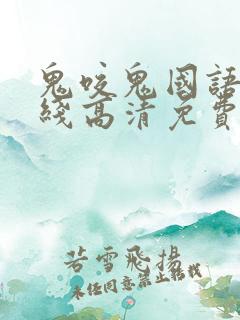 鬼咬鬼國語
綫高清免費
若雪飛揚
未经同意禁止转载